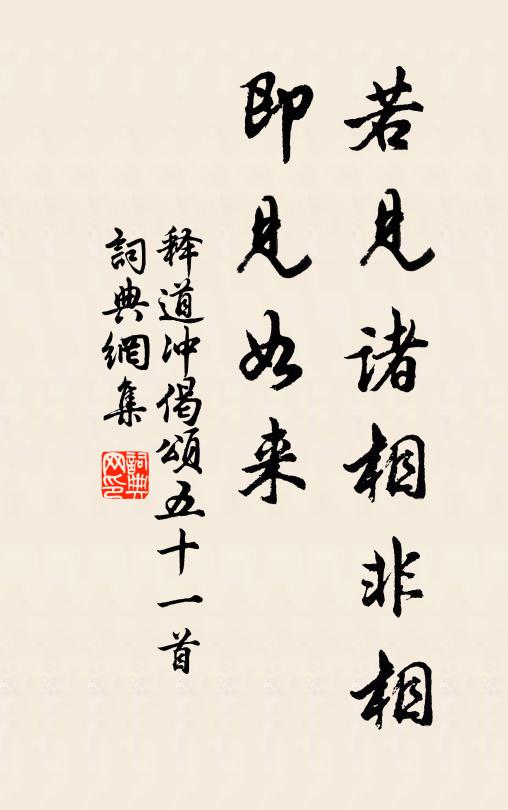 若見诸相非相
即見如来
释道冲偈頌五十一首
詞典網集
詞典網印